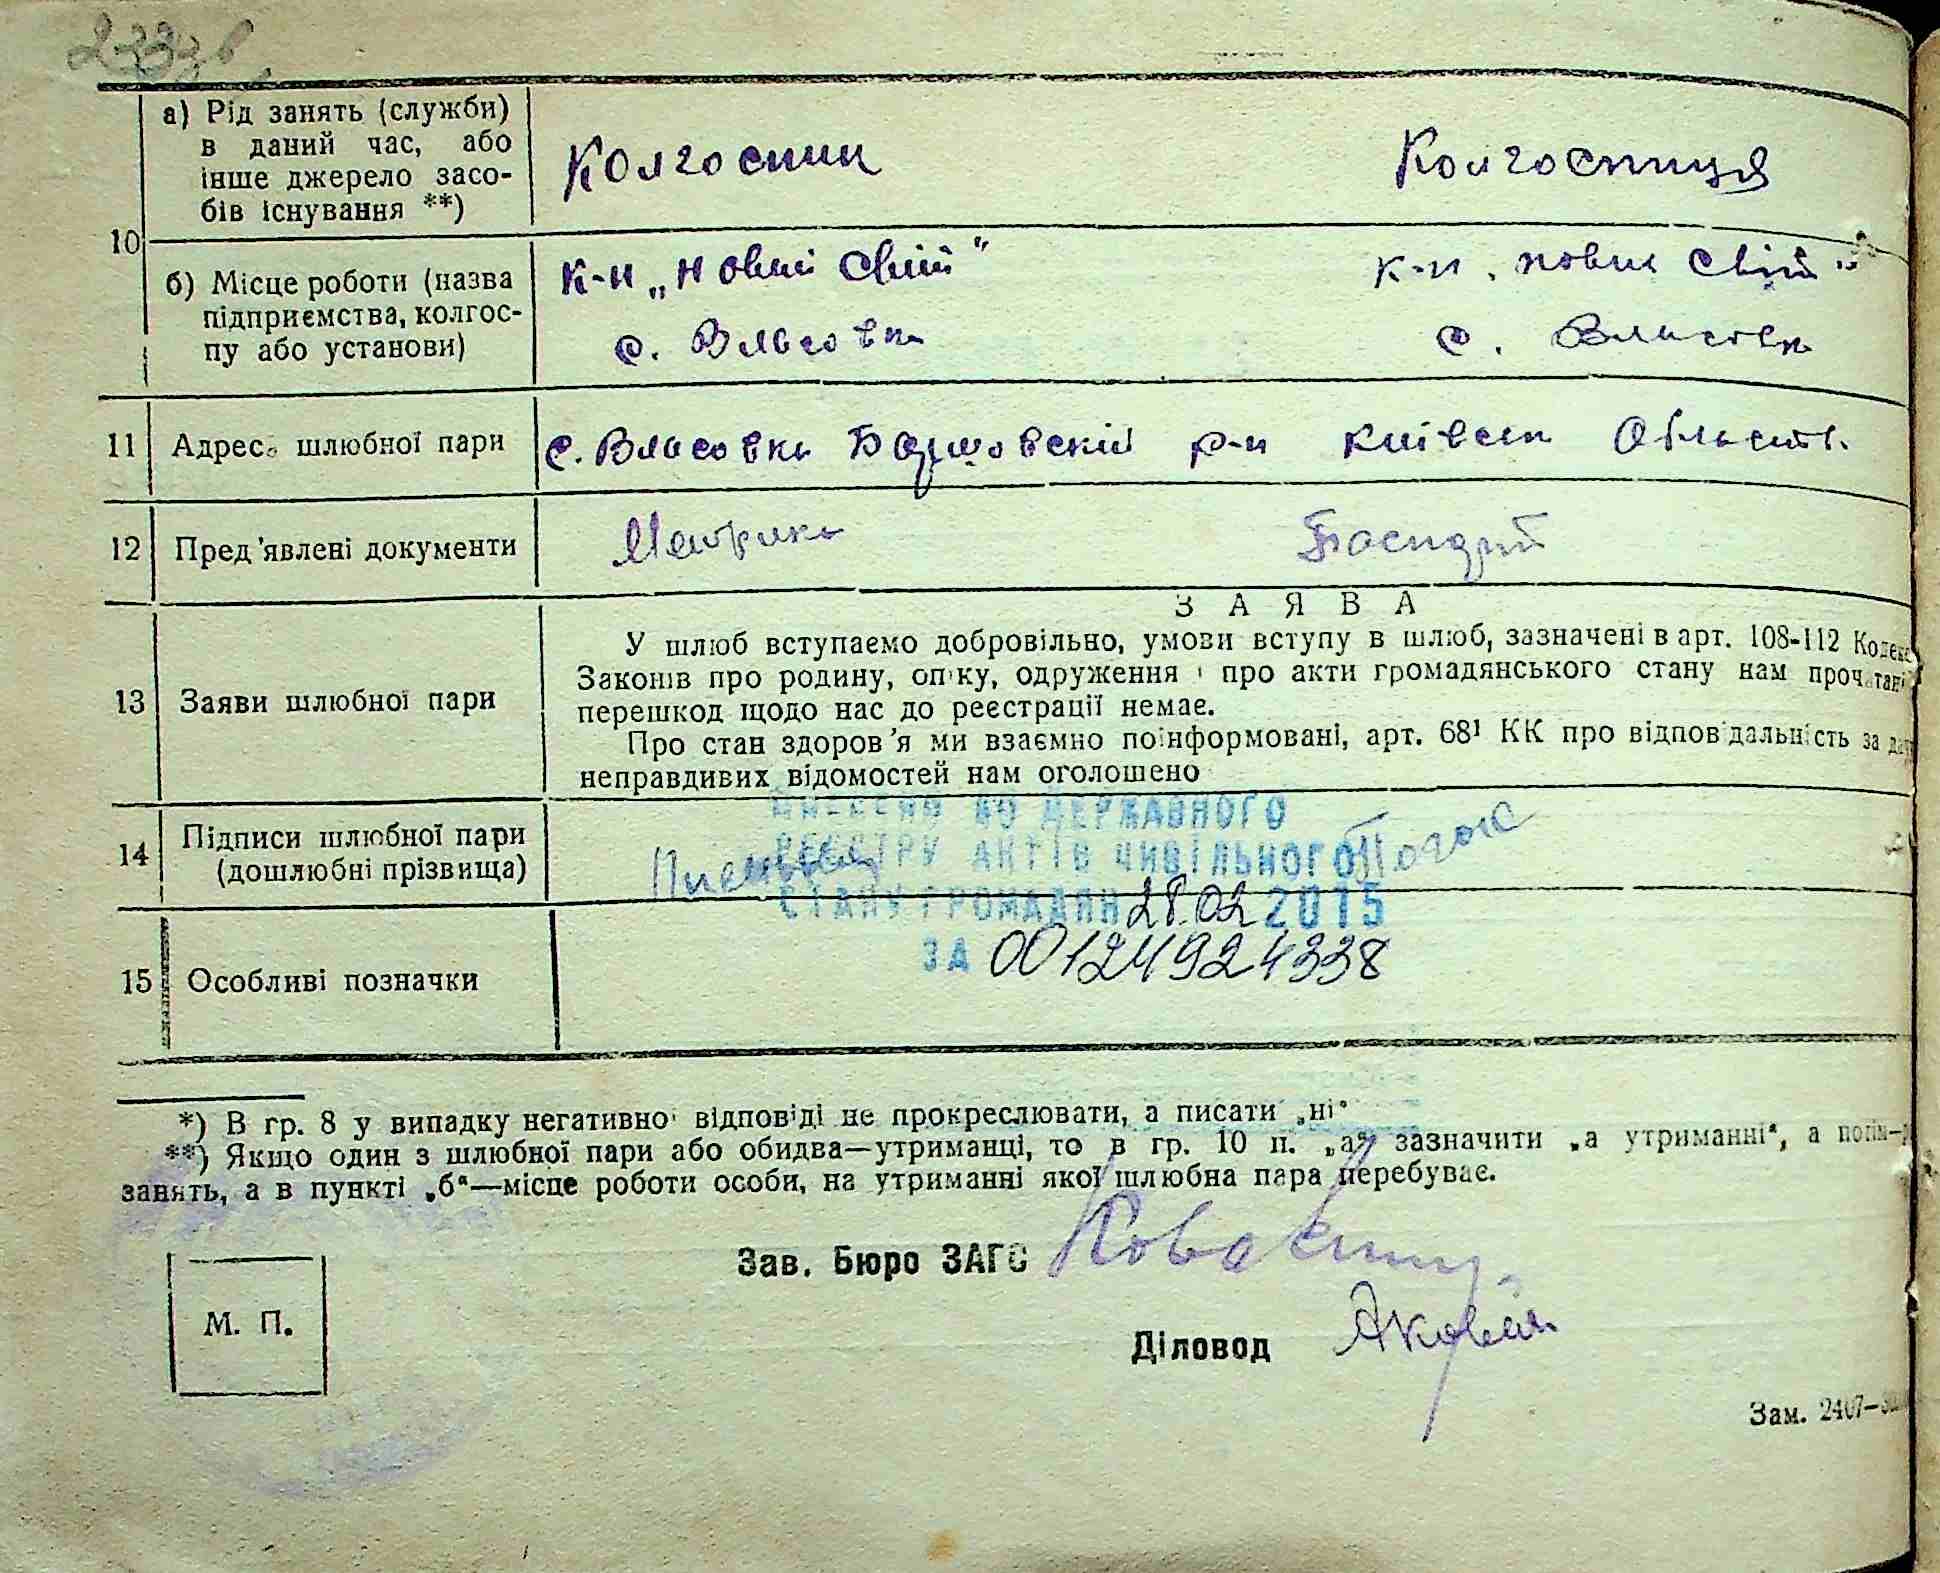 а) Рід занять (служби)
в даний час, або
інше джерело засо-
бів існування **)
Колгоспник
Колгоспиця
10
б) Місце роботи (назва
підприємства, колгос-
пу або установи)
К-п „Новий Світ"
с. Власовка
к-п „новий Світ"
с. Власовка
11
Адреса шлюбної пари
с. Власовка Баришовский р-н київськ Область.
12
Пред'явлені документи
Метрика
Паспорт
13
Заяви шлюбної пари
ЗАЯВА
У шлюб вступаємо добровільно, умови вступу в шлюб, зазначені в арт. 108-112 Кодекс
Законів про родину, опіку, одруження і про акти громадянського стану нам прочитані
перешкод щодо нас до реєстрації немає.
Про стан здоров'я ми взаємно поінформовані, арт. 68¹ КК про відповідальність за дачу
неправдивих відомостей нам оголошено
14
Підписи шлюбної пари
(дошлюбні прізвища)
ВНЕСЕНО ДО ДЕРЖАВНОГО
РЕЄСТРУ АКТІВ ЦИВІЛЬНОГО
СТАНУ ГРОМАДЯН 28.02 2015
ЗА 00124924338
15
Особливі позначки
*) В гр. 8 у випадку негативної відповіді не прокреслювати, а писати „ні"
**) Якщо один з шлюбної пари або обидва—утриманці, то в гр. 10 п. „а" зазначити „а утриманні", а потім—
занять, а в пункті „б"—місце роботи особи, на утриманні якої шлюбна пара перебуває.
Зав. Бюро ЗАГС
М. П.
Діловод
Зам. 2407—